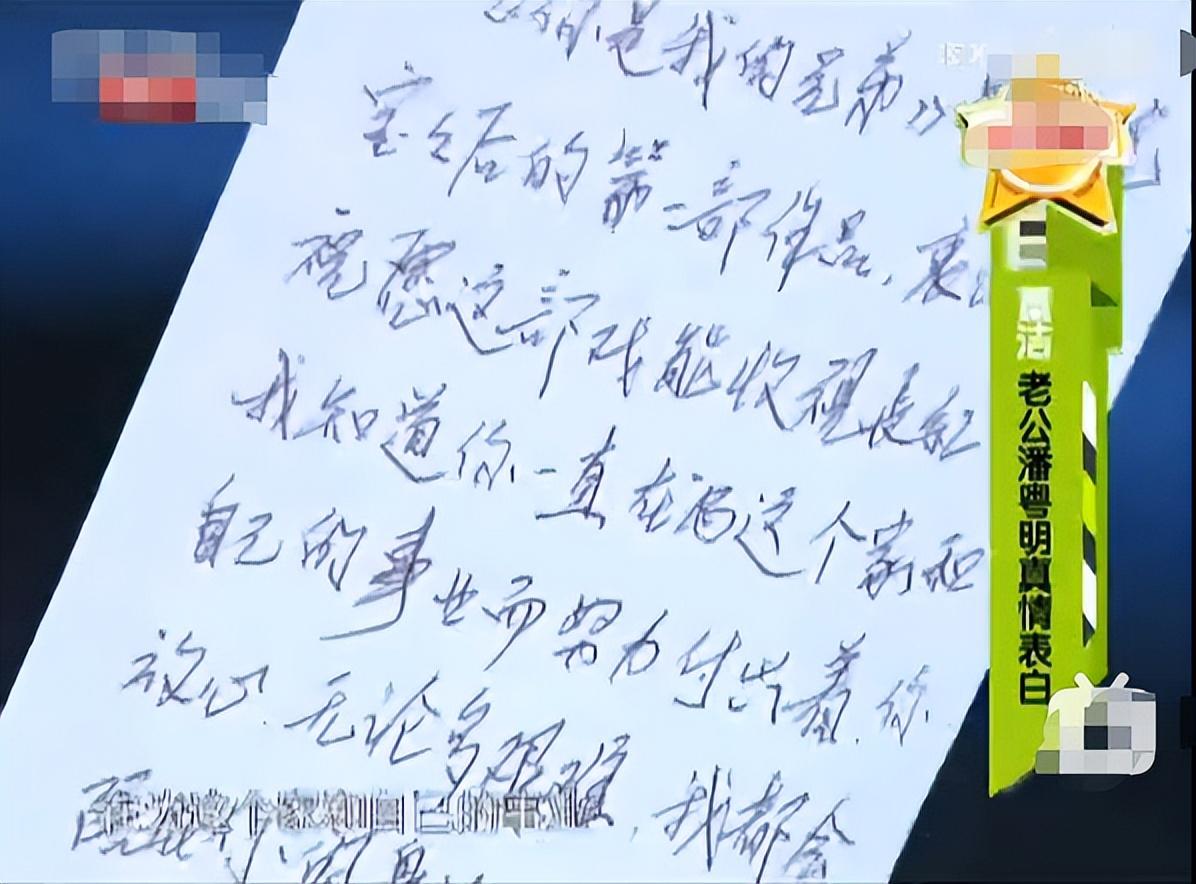 是我的兄弟》
宝宝后的第一部作品，衷
祝愿这部戏能收视长红
我知道你一直在为这个家和
自己的事业而努力付出着，你
放心，无论多艰难，我都会
的身
洁
老公潘粤明真情表白